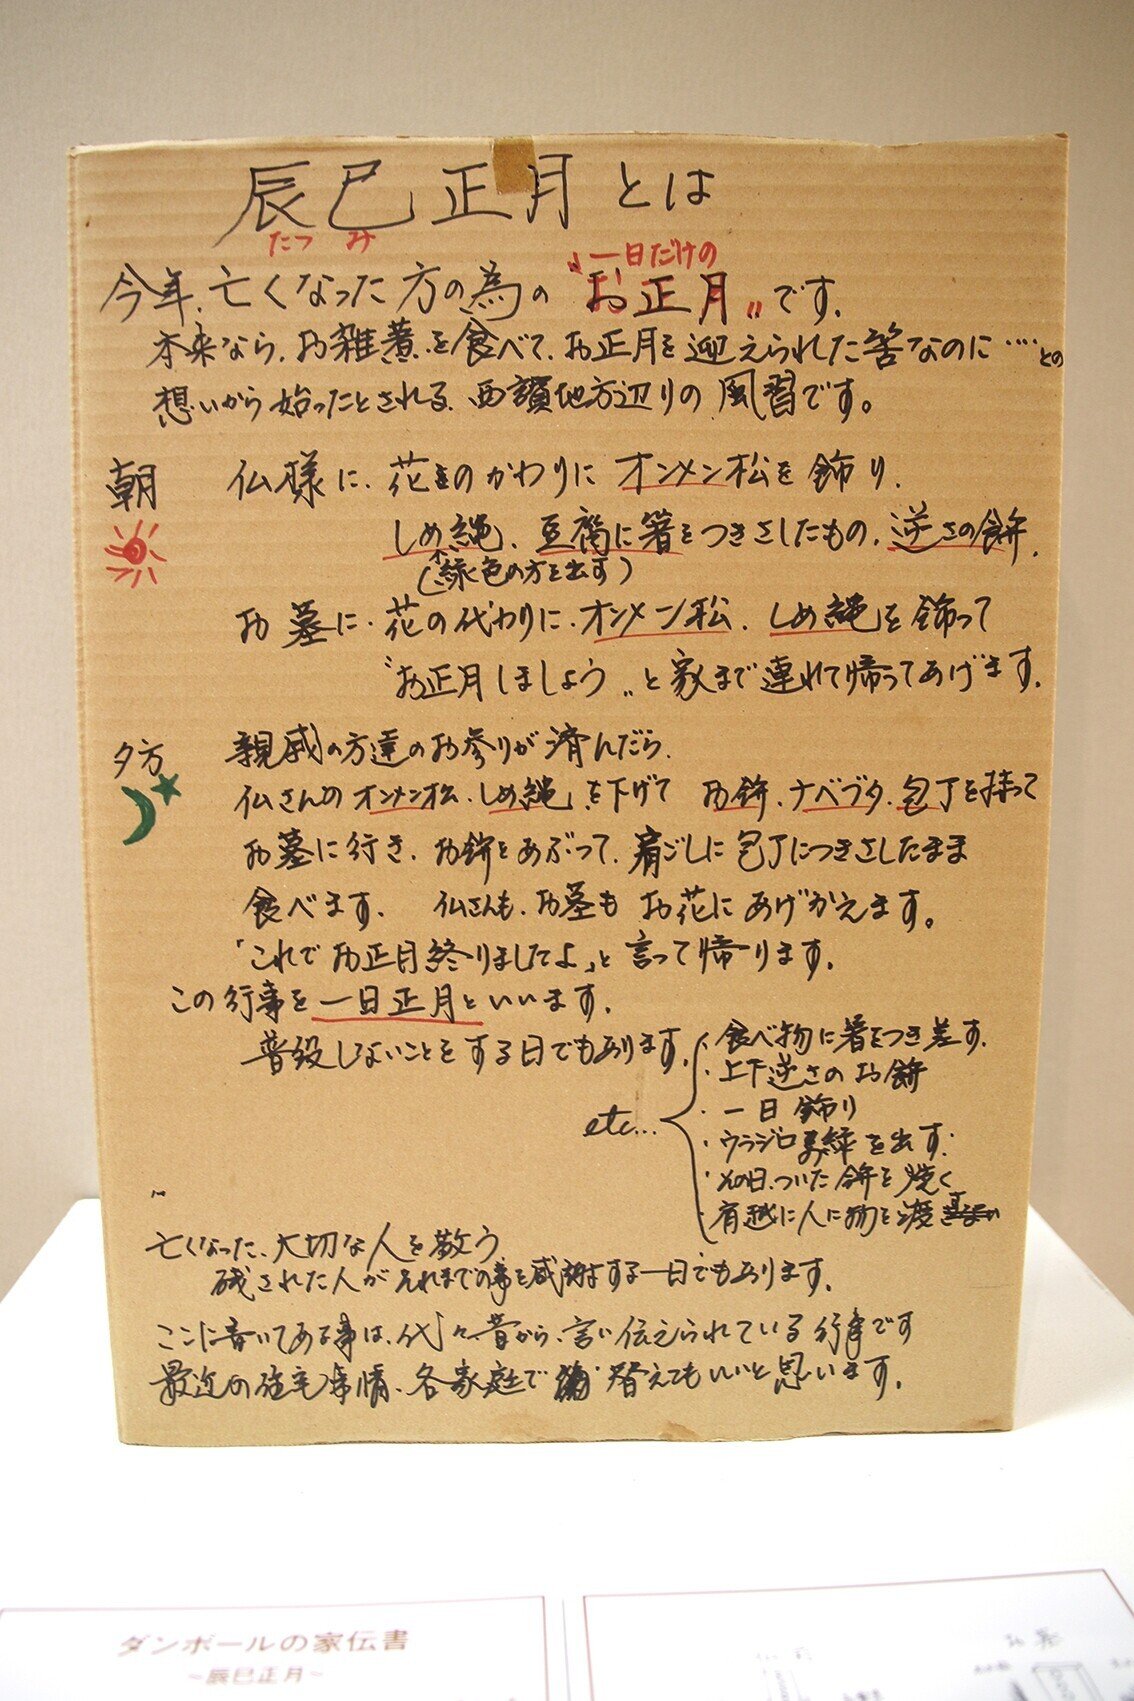 辰巳正月とは
たつ み
一日だけの
今年、亡くなった方の為の〝お正月〟です。
本来なら、お雑煮を食べて、お正月を迎えられた筈なのに‥‥との
想いから始ったとされる、西讃地方辺りの風習です。
朝 仏様に、花のかわりにオンメン松を飾り、
しめ縄、豆腐に箸をつきさしたもの、逆さの餅、
(緑色の方を出す)
お墓に、花の代わりに、オンメン松、しめ縄を飾って
〝お正月しましょう〟と家まで連れて帰ってあげます。
夕方 親戚の方達のお参りが済んだら、
仏さんのオンメン松、しめ縄を下げて お餅、ナベブタ、包丁を持って
お墓に行き、お餅をあぶって、肩ごしに包丁につきさしたまま
食べます。 仏さんも、お墓も お花にあげかえます。
「これでお正月終りましたよ」と言って帰ります。
この行事を一日正月といいます。
普段しないことをする日でもあります。
etc...
・食べ物に箸をつき差す。
・上下逆さのお餅
・一日飾り
・ウラジロ緑を出す。
・その日、ついた餅を焼く
・肩越に人に物を渡す
亡くなった、大切な人を敬う
残された人がそれまでの事を感謝する一日でもあります。
ここに書いてある事は、代々昔から、言い伝えられている行事です
最近の住宅事情、各家庭で 替えてもいいと思います。
ダンボールの家伝書
~辰巳正月~